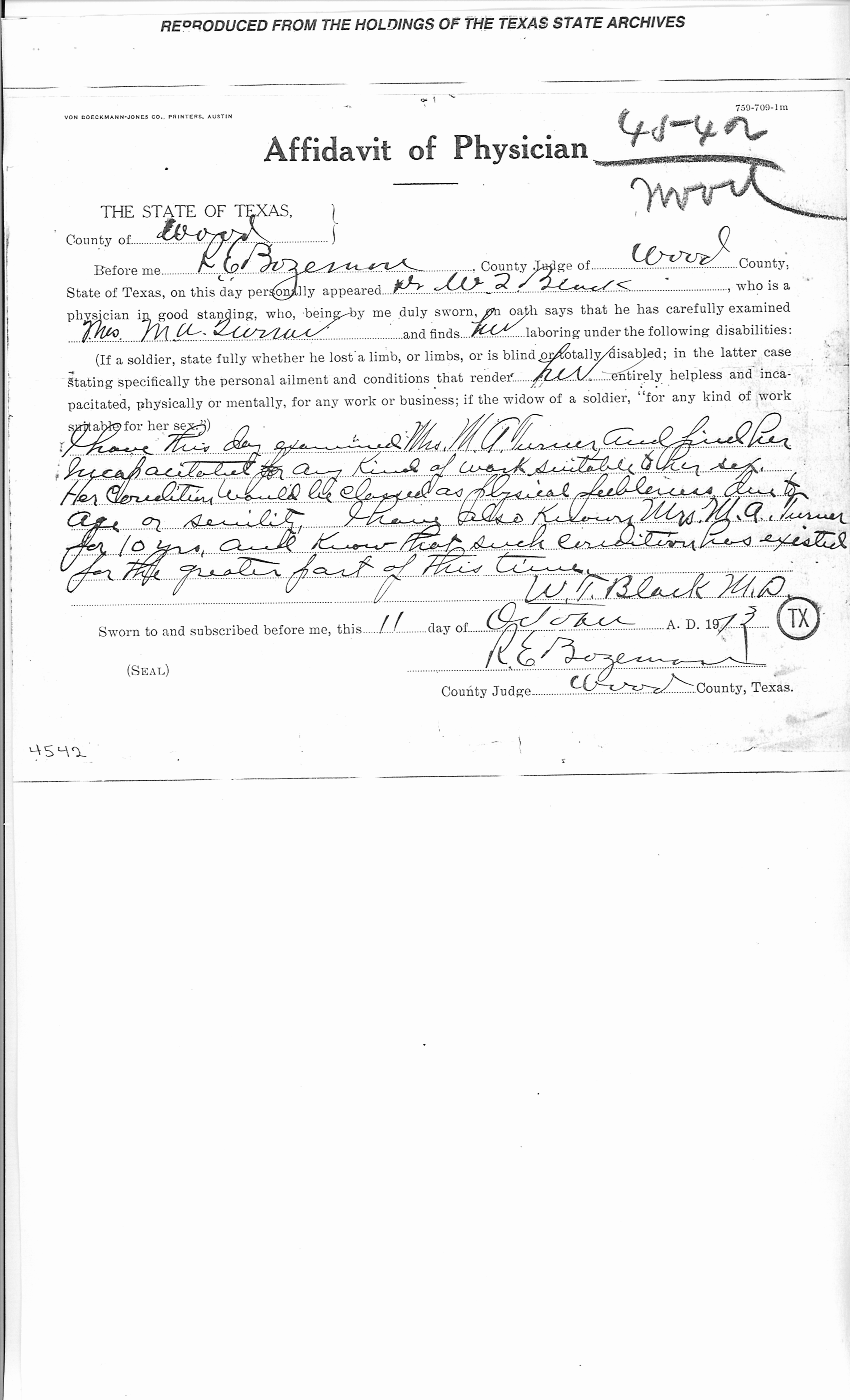 REPRODUCED FROM THE HOLDINGS OF THE TEXAS STATE ARCHIVES
VON BOECKMANN-JONES CO., PRINTERS, AUSTIN
759-709-1m
Affidavit of Physician
45-42
Wood
THE STATE OF TEXAS,
County of Wood
Before me R.E. Bozeman, County Judge of Wood County,
State of Texas, on this day personally appeared Dr W T Black, who is a
physician in good standing, who, being by me duly sworn, on oath says that he has carefully examined
Mrs. M A. Turner and finds her laboring under the following disabilities:
(If a soldier, state fully whether he lost a limb, or limbs, or is blind or totally disabled; in the latter case
stating specifically the personal ailment and conditions that render her entirely helpless and inca-
pacitated, physically or mentally, for any work or business; if the widow of a soldier, "for any kind of work
suitable for her sex.")
I have this day examined Mrs. M. A. Turner and find her
incapacitated for any kind of work suitable to her sex.
Her condition would be classed as physical feebleness due to
age or senility. I have also known Mrs. M. A. Turner
for 10 yrs. and know that such condition has existed
for the greater part of this time.
W. T. Black M.D.
Sworn to and subscribed before me, this 11 day of A. D. 1913
TX
R.E. Bozeman
(SEAL)
County Judge Wood County, Texas.
4542